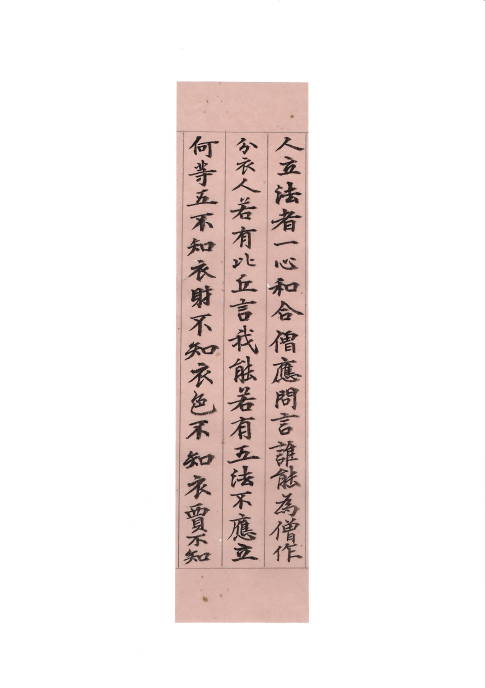 人立法者一心和合僧應問言誰能為僧作
分衣人若有比丘言我能若有五法不應立
何等五不知衣財不知衣色不知衣賈不知